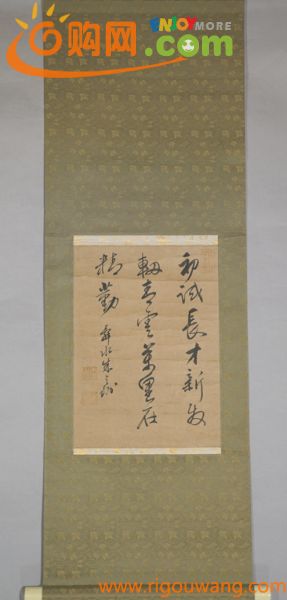 购网
ENJOY
MORE
初試長才新發
軔青雲萬里在
精勤 舜水朱之瑜
www.rigouwang.com